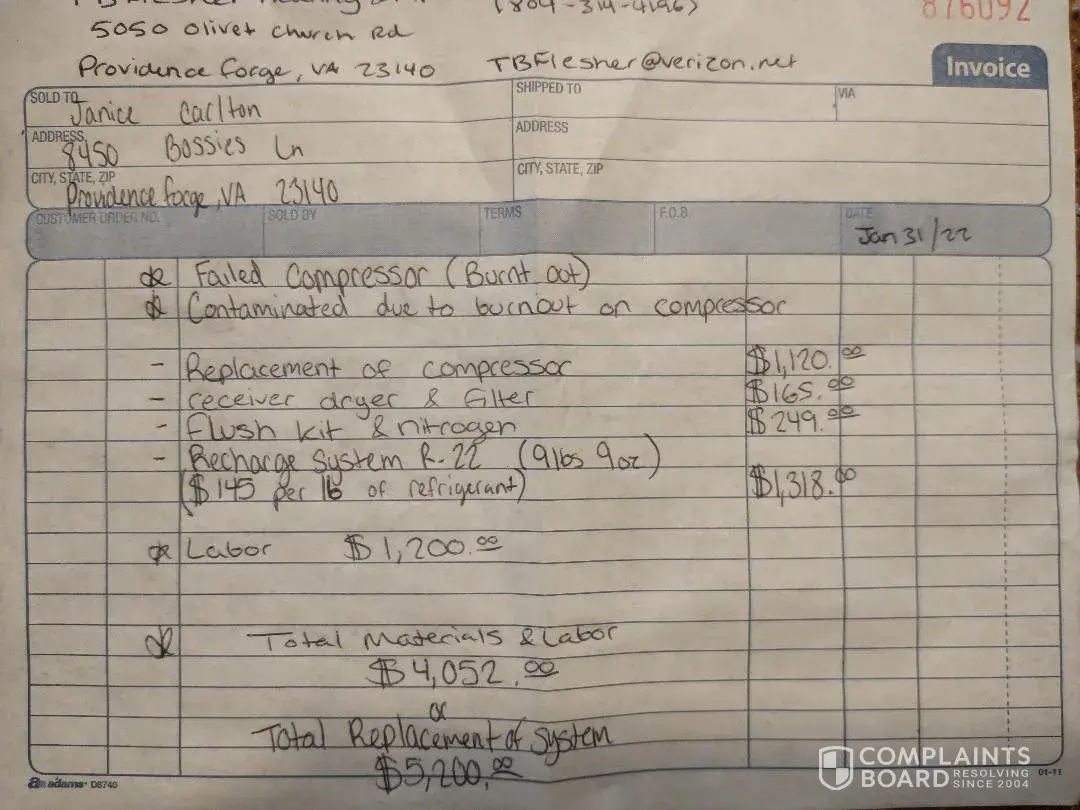 (804-314-4196)
876092
5050 Olivet Church Rd
Providence Forge, VA 23140 TBFlesher@verizon.net
Invoice
SOLD TO Janice Carlton SHIPPED TO VIA
ADDRESS 8450 Bossies Ln ADDRESS
CITY, STATE, ZIP Providence Forge, VA 23140 CITY, STATE, ZIP
CUSTOMER ORDER NO. SOLD BY TERMS F.O.B. DATE Jan 31/22
Failed Compressor (Burnt out)
Contaminated due to burnout on compressor
- Replacement of compressor $1,120.00
- receiver dryer & Filter $165.00
- Flush kit & nitrogen $249.00
- Recharge System R-22 (9lbs 9oz)
($145 per lb of refrigerant) $1,318.00
Labor $1,200.00
Total Materials & Labor
$4,052.00
or
Total Replacement of System
$5,200.00
adams D8740
COMPLAINTS BOARD RESOLVING SINCE 2004
01-11